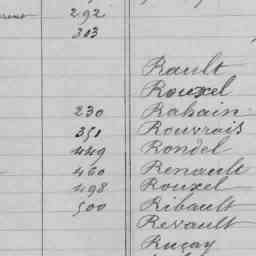 292
303
Rault
Rouxel
230 Rahain
351 Rouvrais
449 Rondel
460 Renault
498 Rouxel
500 Ribault
Revault
Ruçay